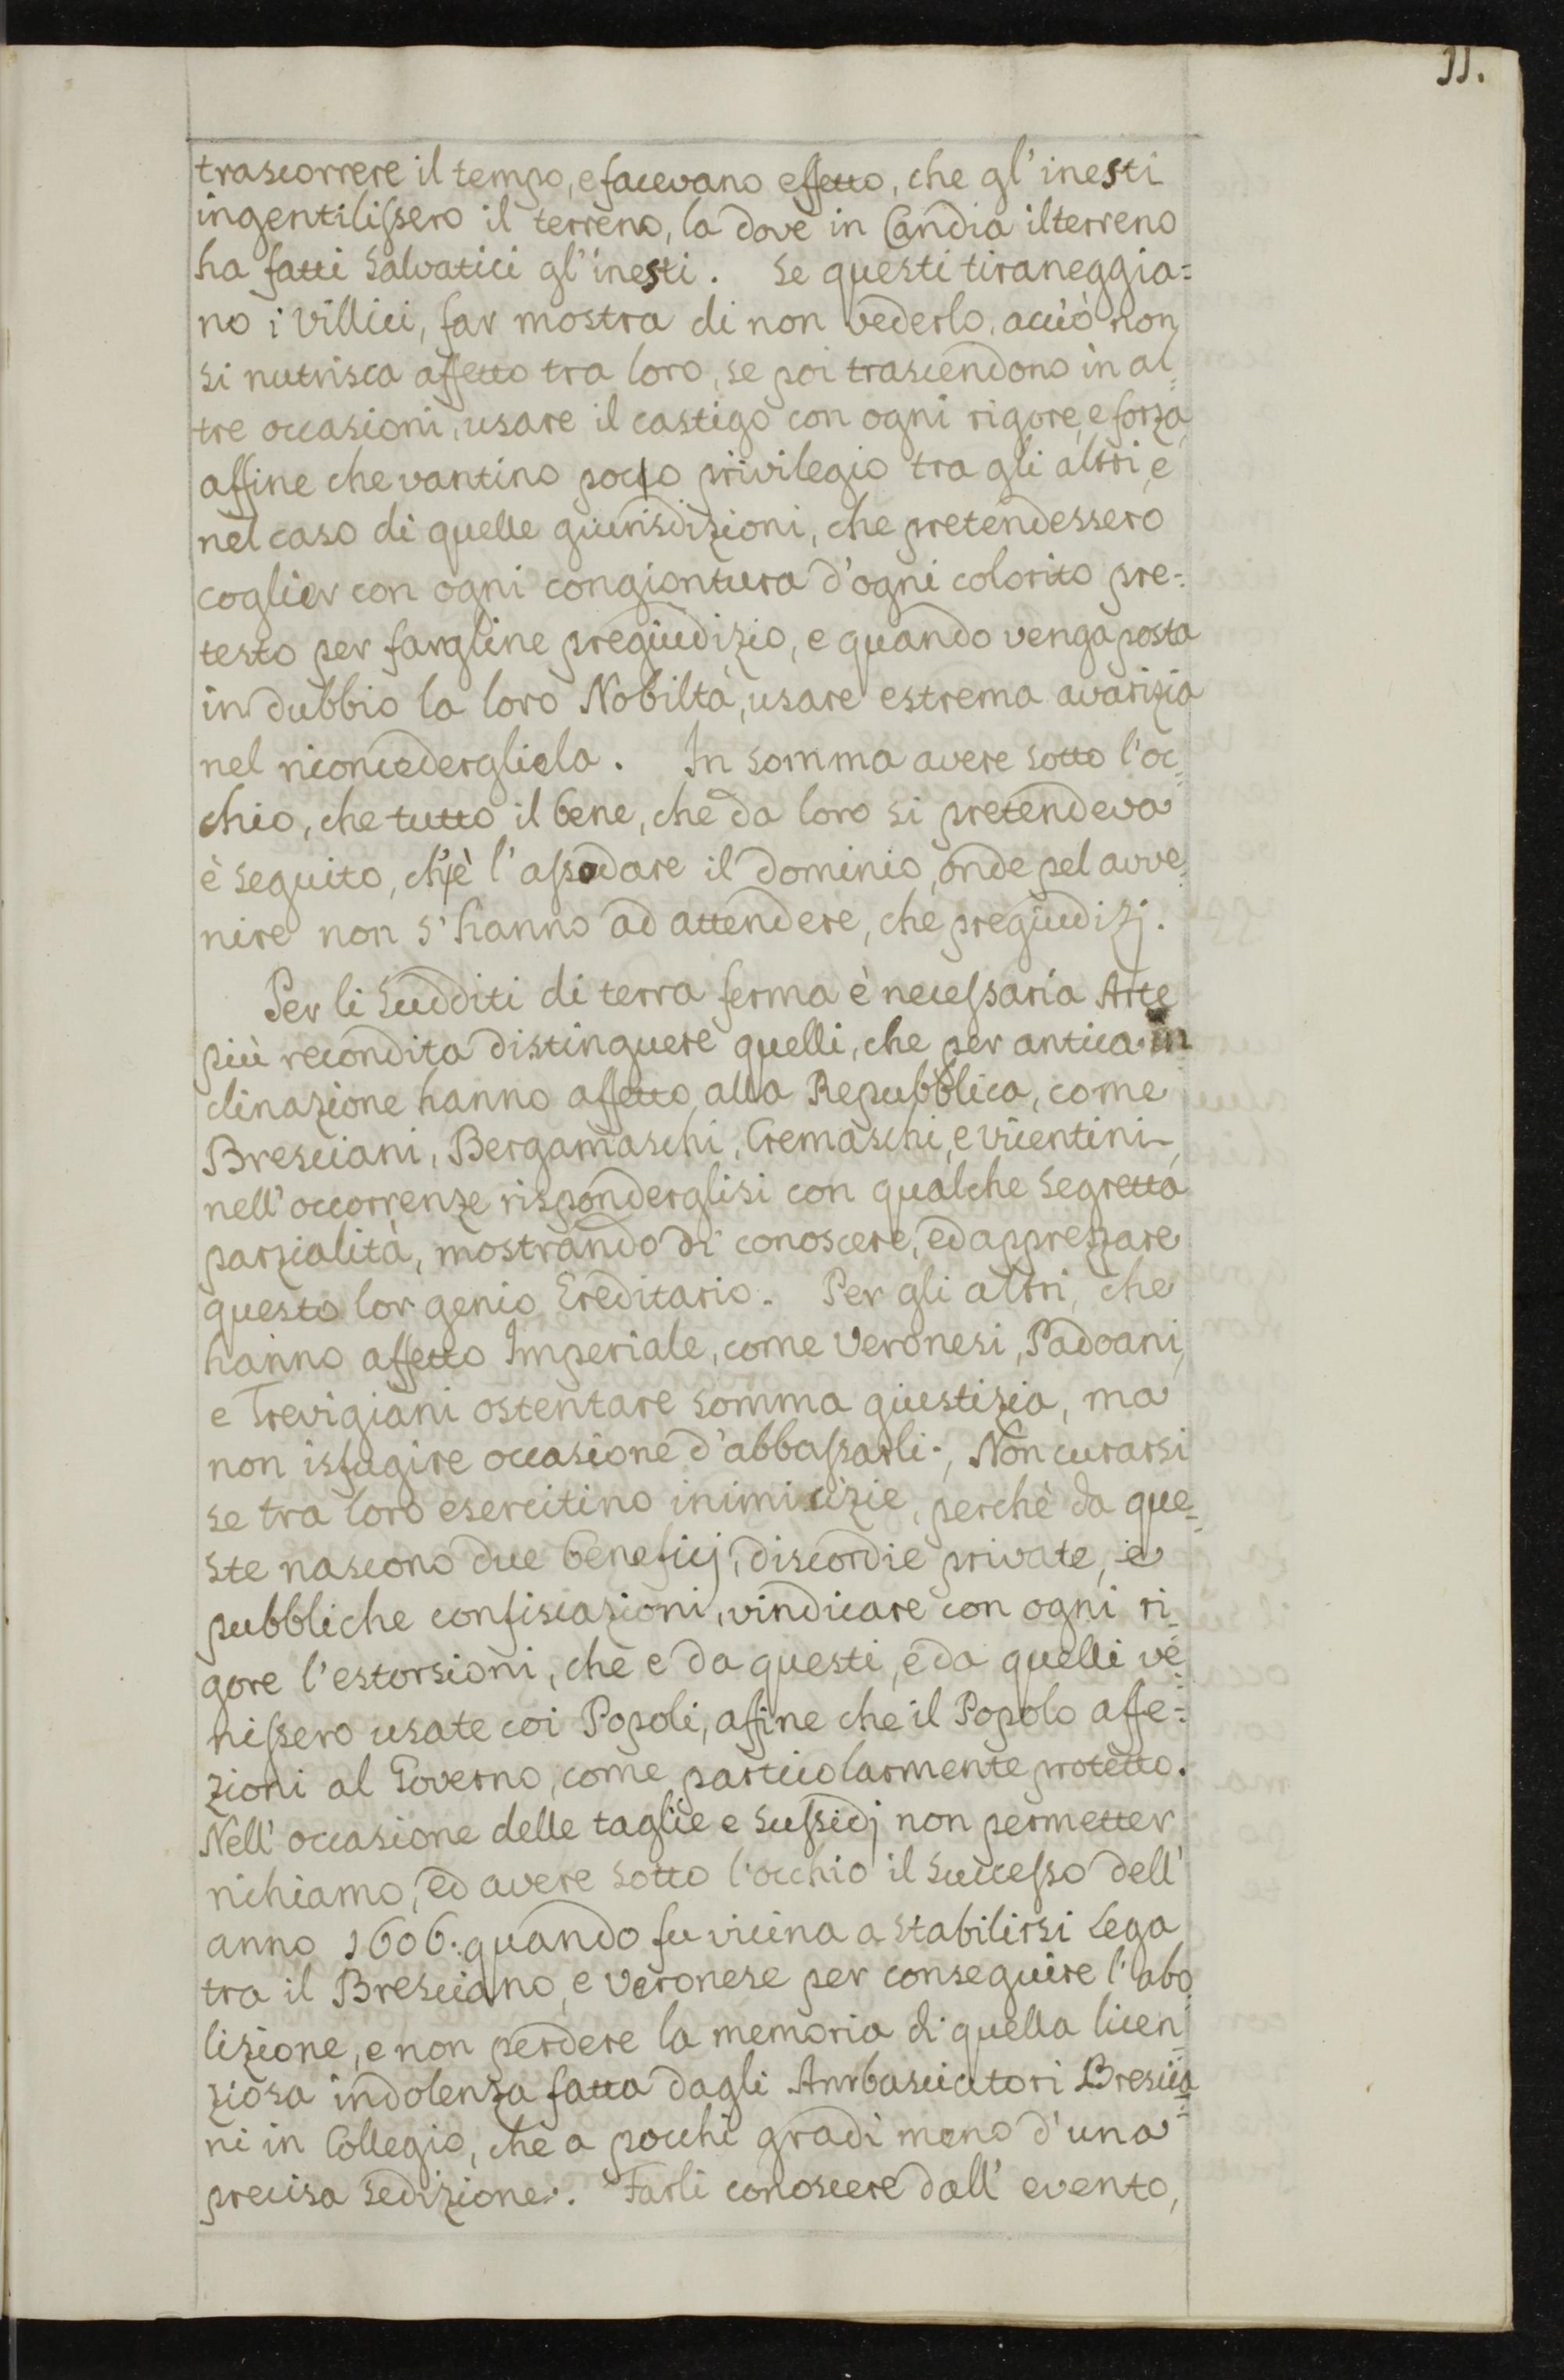 11.
trascorrere il tempo, e facevano effetto, che gl'inesti
ingentilissero il terreno, la dove in Candia il terreno
ha fatti Salvatici gl'inesti. Se questi tiraneggia=
no i Villici, far mostra di non vederlo, acciò non
si nutrisca affetto tra loro, se poi trascendono in al=
tre occasioni, usare il castigo con ogni rigore, e forza,
affine che vantino poco privilegio tra gli altri, e
nel caso di quelle giurisdizioni, che pretendessero
coglier con ogni congiontura d'ogni colorito pre=
testo per fargline pregiudizio, e quando venga posta
in dubbio la loro Nobiltà, usare estrema avarizia
nel riconcedergliela. In somma avere sotto l'oc=
chio, che tutto il bene, che da loro si pretendeva
è seguito, ch'è l'assodare il dominio, onde pel avve=
nire non s'hanno ad attendere, che pregiudizj.
Per li Sudditi di terra ferma è necessaria Arte
più recondita distinguere quelli, che per antica in
clinazione hanno affetto alla Repubblica, come
Bresciani, Bergamaschi, Cremaschi, e Vicentini,
nell'occorrenze risponderglisi con qualche Segretta
parzialità, mostrando di conoscere, ed apprezzare
questo lor genio Ereditario. Per gli altri, che
hanno affetto Imperiale, come Veronesi, Padoani,
e Trevigiani ostentare somma giustizia, ma
non isfugire occasione d'abbassarli; Non curarsi
se tra loro esercitino inimicizie, perchè da que=
ste nascono due beneficj, discordie private, e
pubbliche confiscazioni, vindicare con ogni ri=
gore l'estorsioni, che e da questi, e da quelli ve=
nissero usate coi Popoli, affine che il Popolo affe=
zioni al Governo, come particolarmente protetto.
Nell'occasione delle taglie e Sussidj non permetter
richiamo, ed avere sotto l'occhio il Successo dell'
anno 1606. quando fu vicina a stabilirsi Lega
tra il Bresciano, e Veronese per conseguire l'abo=
lizione, e non perdere la memoria di quella licen=
ziosa indolenza fatta dagli Ambasciatori Brescia=
ni in Collegio, che a pocchi gradi meno d'una
precisa Sedizione. Farli conoscere dall'evento,